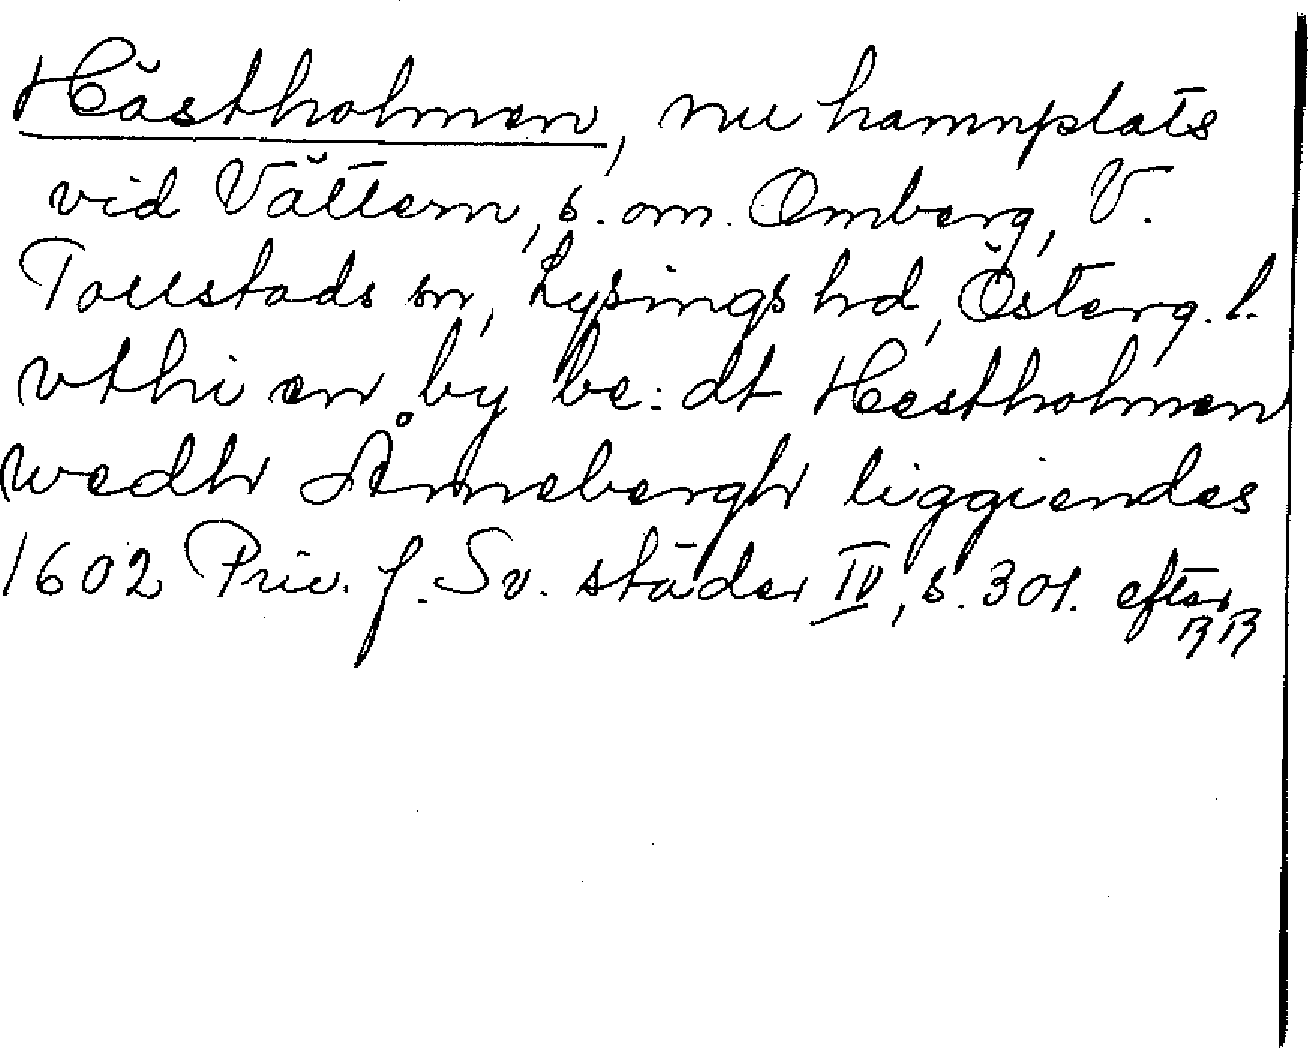 Hästholmen, nu hamnplats
vid Vättern, s. om. Omberg, V.
Tollstads sn, Lysings hd, Österg. l.
vthi en by be:dt Hestholmen
wedh Åmmebergh liggiendes
1602 Priv. f. Sv. städer IV, s. 301. efter
RR